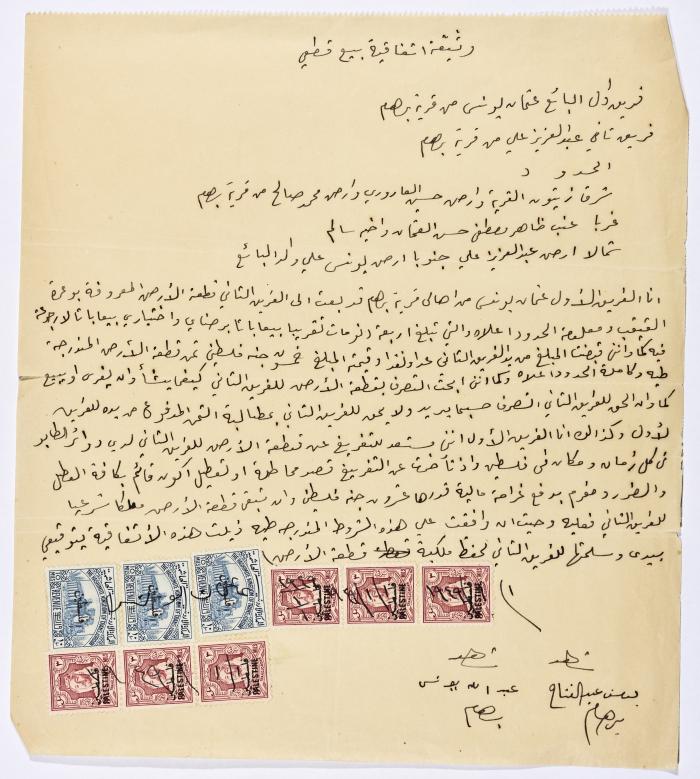 وثيقة اتفاقية بيع قطعي
فريق اول البائع عثمان يونس من قرية برهام
فريق ثاني عبد العزيز علي من قرية برهام
الحدود
شرقا زيتون القرية وارض حسين العاروري وارض محمد صالح من قرية برهام
غربا عنب ظاهر مصطفى حسن العثمان واخيه سالم
شمالا ارض عبد العزيز علي جنوبا ارض يونس علي والد البائع
انا الفريق الاول عثمان يونس من اهالي قرية برهام قد بعت الى الفريق الثاني قطعة الأرض المعروفة بوعرة
ومعلومة الحدود اعلاه والتي تبلغ اربعة دونمات تقريبا بيعا باتا برضاي واختياري بيعا باتا لا رجوع
فيه كما وانني قبضت المبلغ من يد الفريق الثاني عدا ونقدا وقيمة المبلغ خمسون جنه فلسطيني ثمن قطعة الأرض المندرجة
طيه وكاملة الحدود اعلاه وكما انني ابحت التصرف بقطعة الارض للفريق الثاني كيفما يشأ وان يفرق او يبيع
كما وان الحق للفريق الثاني التصرف حسبما يريد ولا يحق للفريق الثاني بمطالبة الثمن المدفوع من يده للفريق
الأول وكذالك انا الفريق الأول انني مستعد للتفريغ عن قطعة الارض للفريق الثاني لدى دوائر الطابو
في كل زمان ومكان في فلسطين واذ تأخرت عن التفريغ قصد مماطلة او تعطيل اكون قائم بكافة العطل
والضرر ومغرم بدفع غرامة مالية قدرها عشرون جنه فلسطيني وان تبقى قطعة الارض ملكا شرعيا
للفريق الثاني فعليه وحيث ان وافقت على هذه الشروط المندرجه طيه ذيلت هذه الأتفاقية بتوقيعي
بيدي وسلمتها للفريق الثاني لحفظ ملكية قطعة الأرض
PALESTINE
فلسطين
شهد شهد
يوسف عبد الفتاح عبد الله يونس
برهام برهام